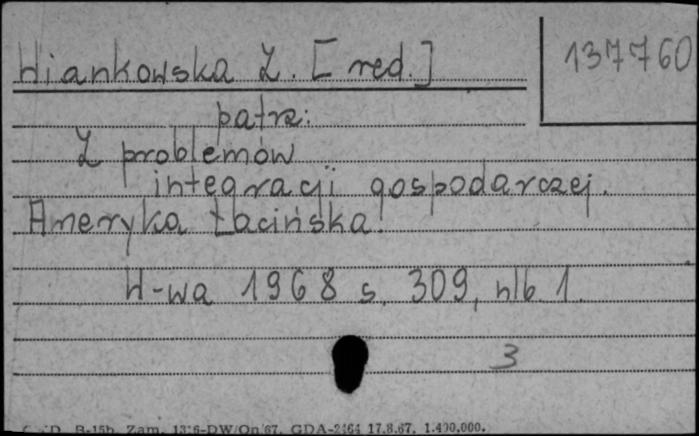 Wiankowska Z. [red.]
137760
patrz:
Z problemów
integracji gospodarczej.
Ameryka Łacińska.
W-wa 1968 s. 309, nlb 1.
3
B-15b Zam. GDA-2464 17.8.67. 1.400.000.